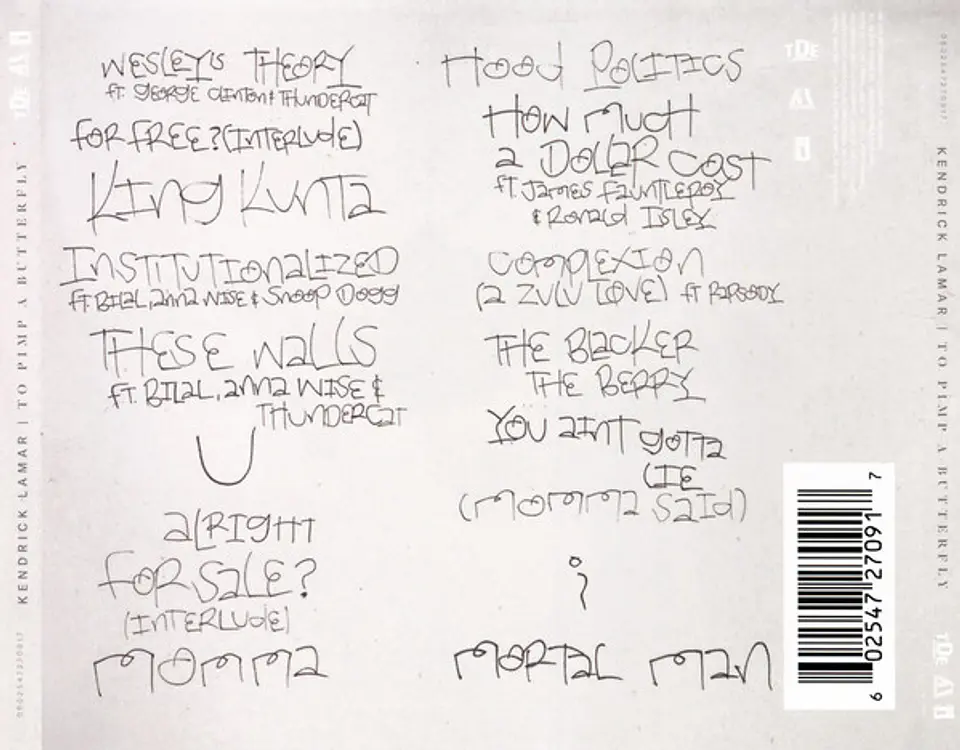 WESLEY'S THEORY
ft. GEORGE CLINTON & THUNDERCAT
FOR FREE? (INTERLUDE)
KING KUNTA
INSTITUTIONALIZED
ft BILAL, ANNA WISE & SNOOP DOGG
THESE WALLS
ft. BILAL, ANNA WISE &
THUNDERCAT
U
ALRIGHT
FOR SALE?
(INTERLUDE)
MOMMA
HOOD POLITICS
HOW MUCH
A DOLLAR COST
ft. JAMES FAUNTLEROY
& RONALD ISLEY
COMPLEXION
(A ZULU LOVE) ft RAPSODY
THE BLACKER
THE BERRY
YOU AINT GOTTA
LIE
(MOMMA SAID)
i
MORTAL MAN
KENDRICK LAMAR | TO PIMP A BUTTERFLY
KENDRICK LAMAR | TO PIMP A BUTTERFLY
TDE
TDE
TDE
6 02547 27091 7